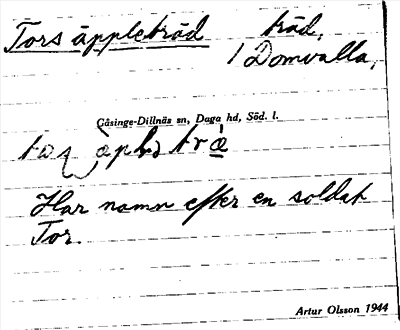 Tors äppleträd träd,
i Domvalla,
Gåsinge-Dillnäs sn, Daga hd, Söd. l.
Har namn efter en soldat
Tor.
Artur Olsson 1944